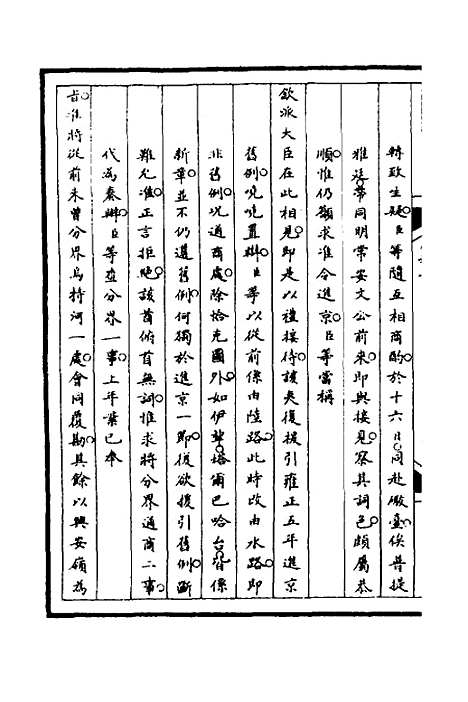 轉致生疑臣等隨互相商酌於十六日同赴礮臺俟普提
雅廷帶同明常安文公前來即與接見察其詞色頗屬恭
順惟仍籲求准令進京臣等當稱
欽派大臣在此相見即是以禮接待該夷復援引雍正五年進京
舊例嘵嘵置辯臣等以從前係由陸路此時改由水路即
非舊例況通商處除恰克圖外如伊犂塔爾巴哈台皆係
新章並不仍遵舊例何獨於進京一節復欲援引舊例斷
難允准正言拒絕該酋俯首無詞惟求將分界通商二事
代為奏辦臣等查分界一事上年業已奉
旨准將從前未曾分界烏特河一處會同履勘其餘以興安嶺為